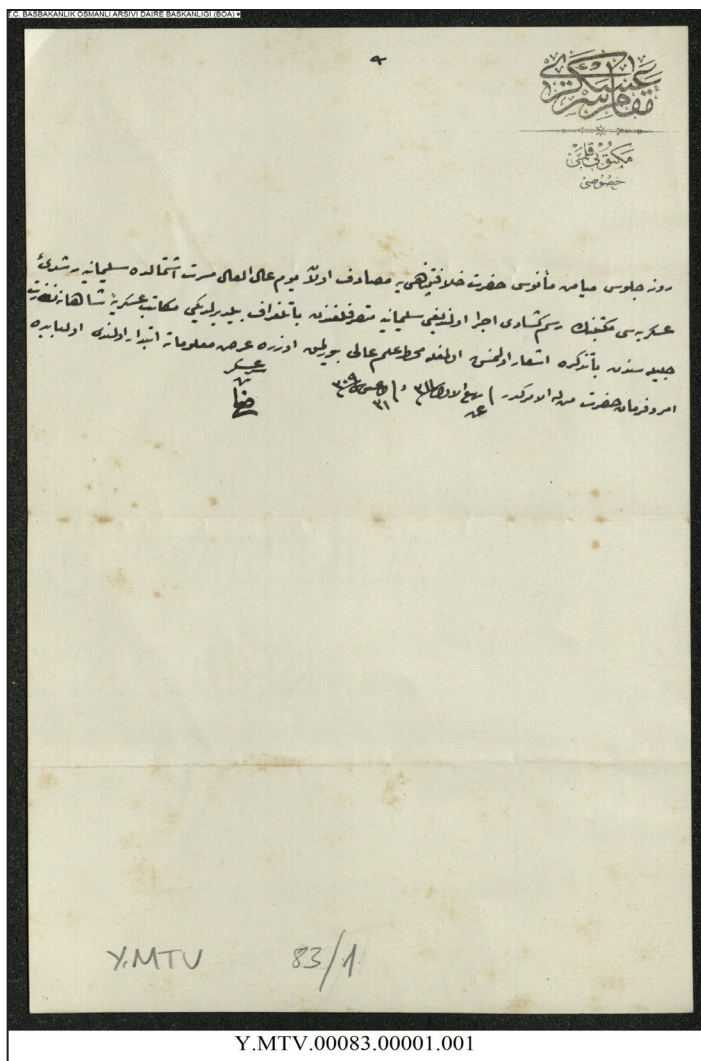 T.C. BASBAKANLIK OSMANLI ARSIVI DAIRE BASKANLIGI (BOA)
مقام سرعسكرى
مكتوبى قلمى
خصوصى
روز جلوس ميامن مأنوس حضرت خلافتپناهى يه مصادف اولان يوم عالى المعالى مسرت اشتمالده سليمانيه رشديهٔ
عسكريه سى مكتبنك رسم كشادى اجرا اولنديغى سليمانيه متصرفلغندن باتلغراف بيلديرلديكى مكاتب عسكريهٔ شاهانه نظارت
جليله سندن باتذكره اشعار اولنمش اولمغله محاط علم عالى بيورلمق اوزره عرض معلوماته ابتدار اولندى اولبابده
امر وفرمان حضرت من له الامركدر ربيع الاول
سرعسكر
رضا
Y.MTV 83/1
Y.MTV.00083.00001.001